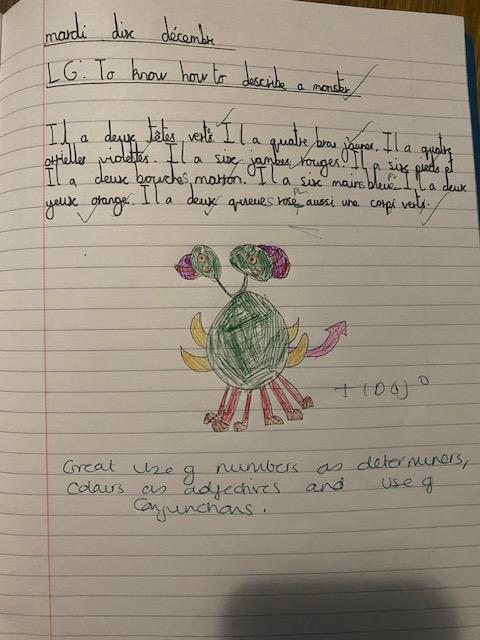 mardi dix décembre
LG: To know how to describe a monster
Il a deux têtes verts. Il a quatre bras jaunes. Il a quatre
orrielles violettes. Il a six jambes rouges. Il a six pieds et
Il a deux bouches marron. Il a six mains bleue. Il a deux
yeux orange. Il a deux queues rose aussi une corps verts.
Great use of numbers as determiners,
colours as adjectives and use of
conjunctions.